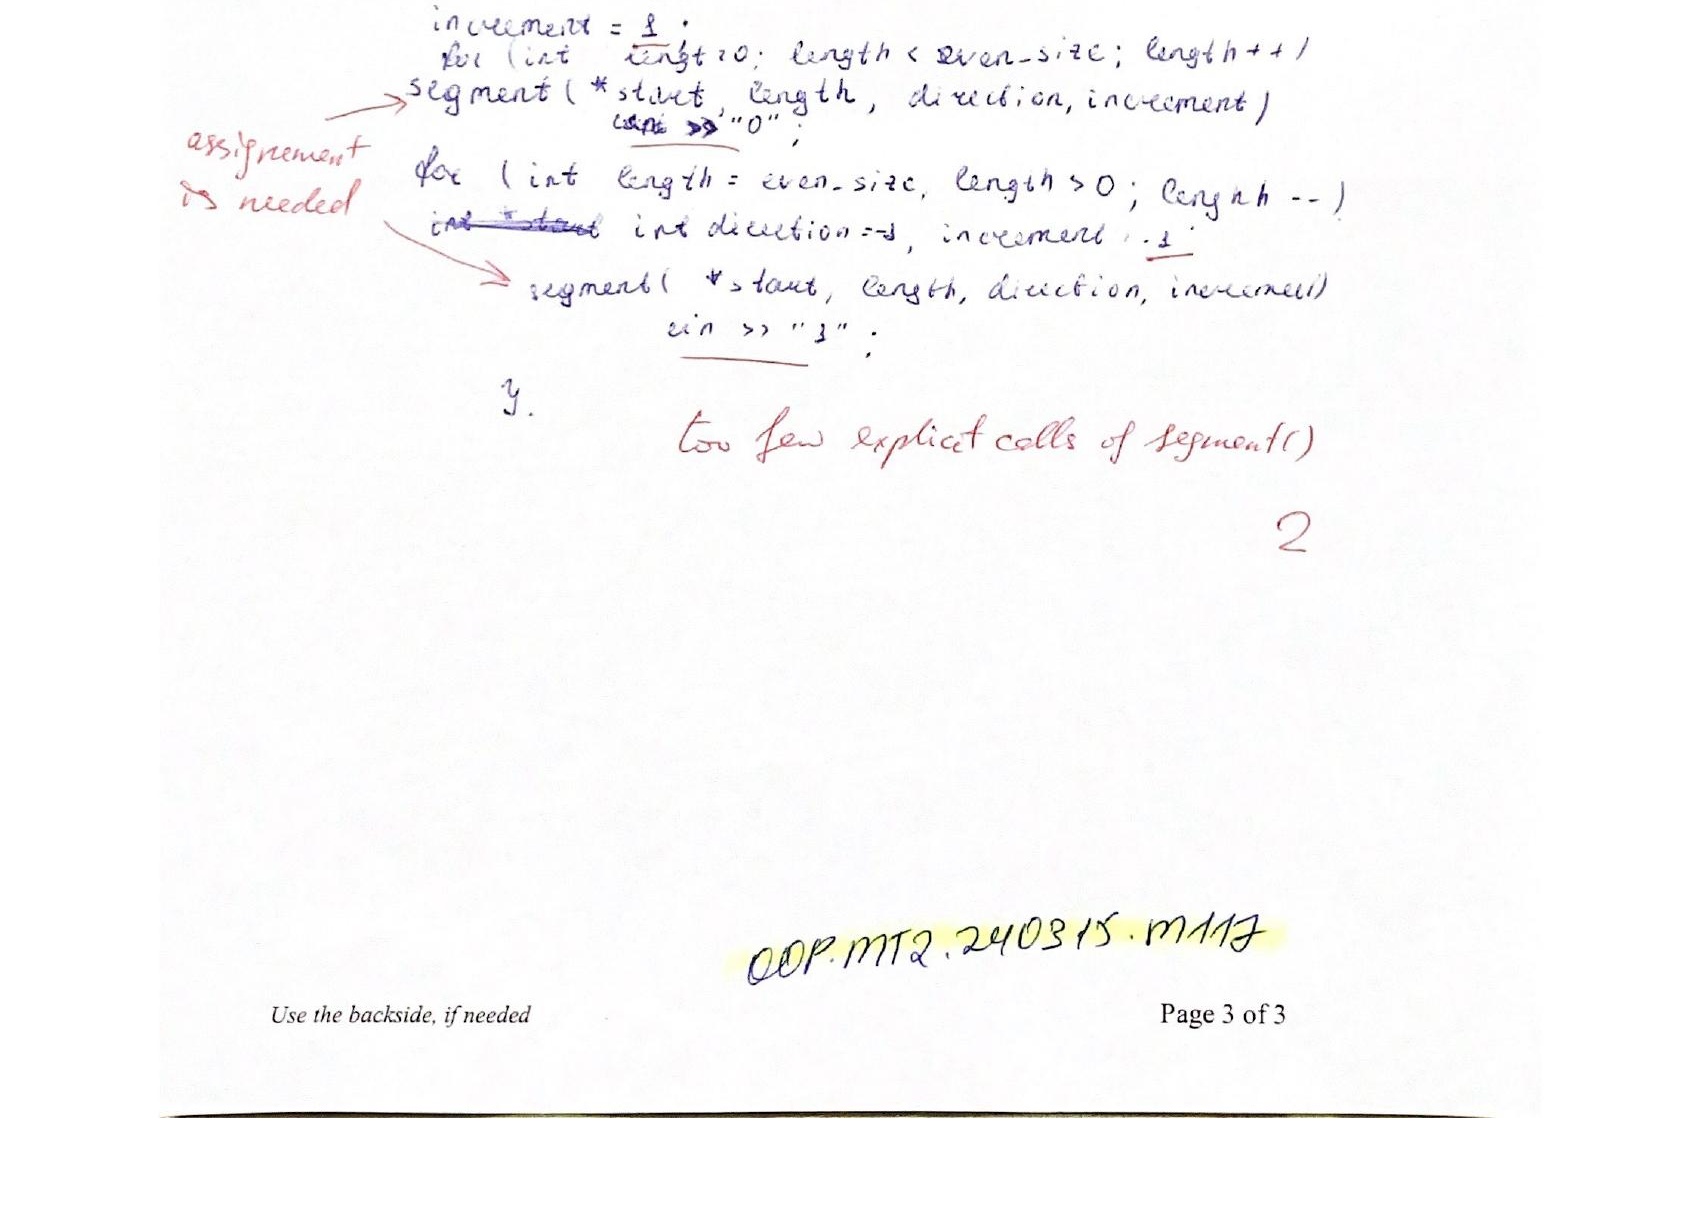 increment = 1;
for (int lengt=0; length < even_size; length++)
segment (*start, length, direction, increment)
>> "0";
assignement
is needed
for (int length = even_size, length > 0; lenghh --)
int direction =-1, increment 1;
segment( *start, length, direction, increment)
cin >> "1";
}.
too few explicit calls of segment()
2
OOP.MT2.240315.M117
Use the backside, if needed
Page 3 of 3